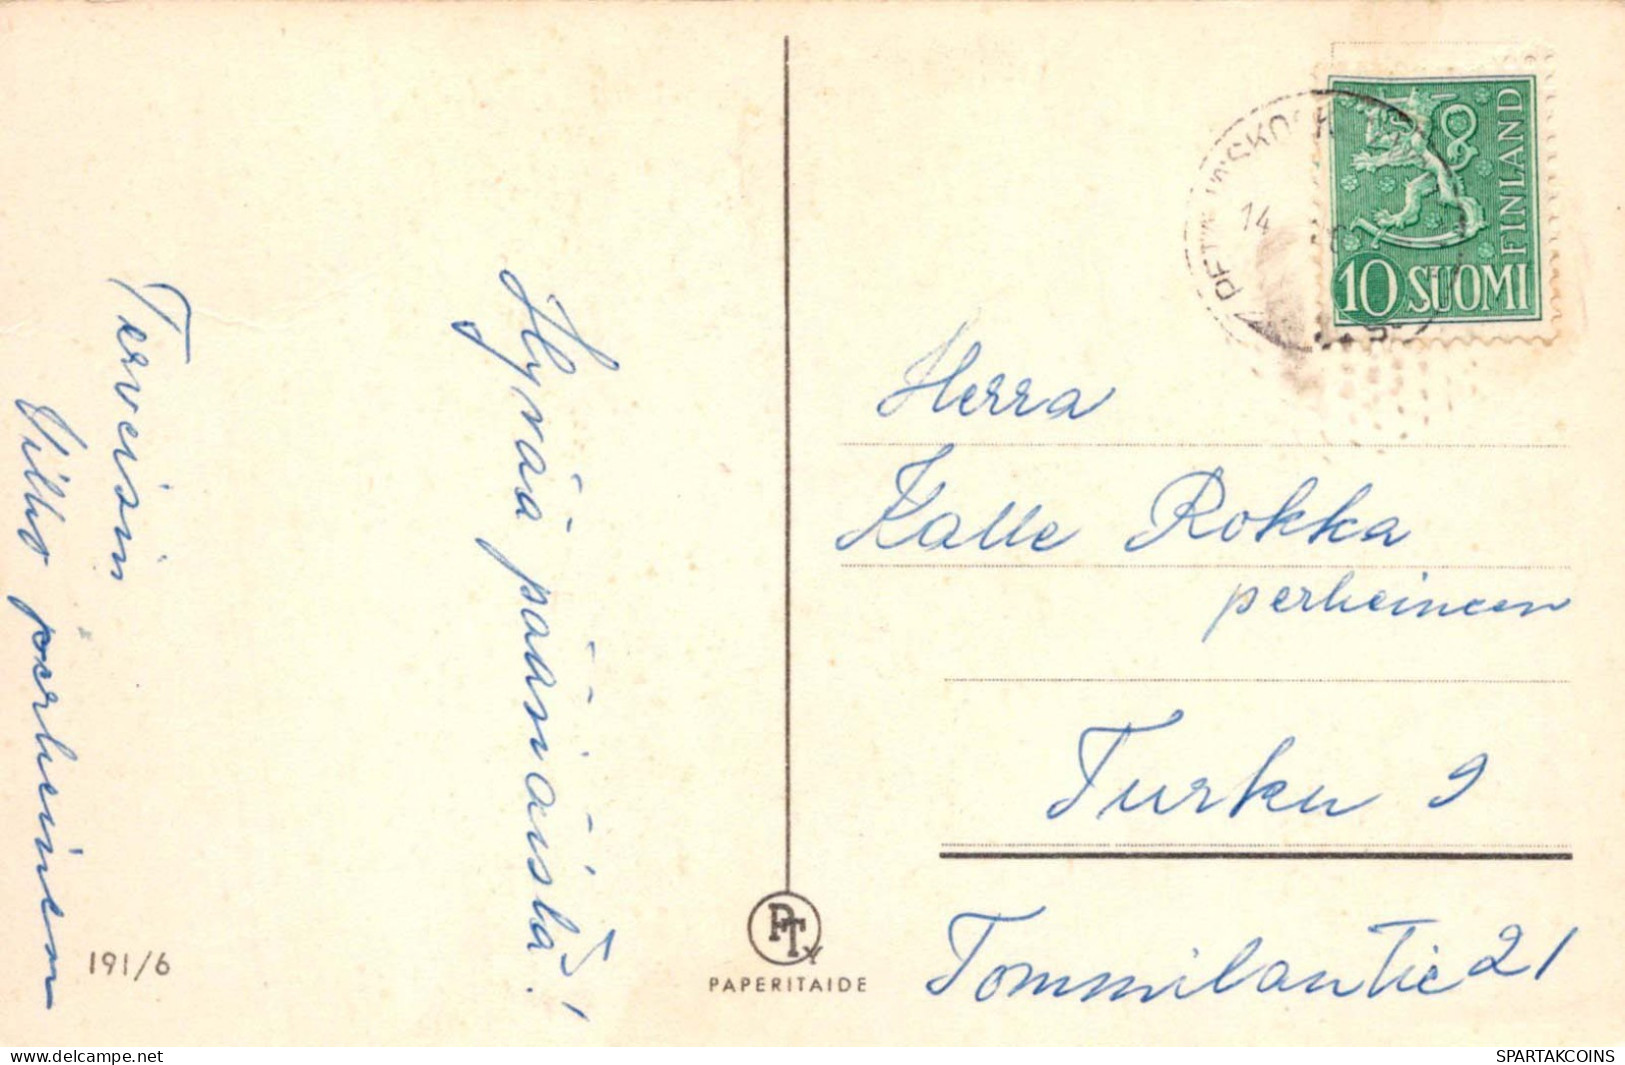 Hyvää pääsiäistä!
Terveisin
Vilho perheineen
191/6
PTy
PAPERITAIDE
FINLAND
10 SUOMI
14
Herra
Kalle Rokka
perheineen
Turku 9
Tommilantie 21
www.delcampe.net
SPARTAKCOINS